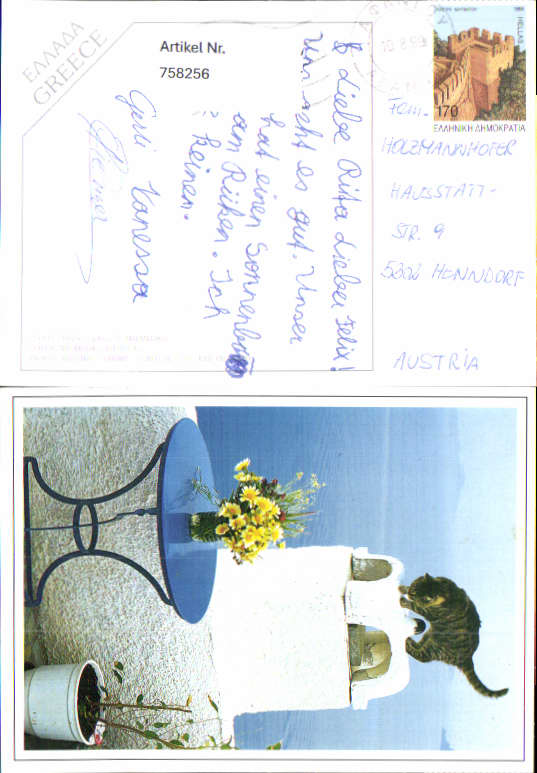 ΕΛΛΑΔΑ
GREECE
Artikel Nr.
758256
Liebe Rita Lieber Felix!
Uns geht es gut. Unser
hat einen Sonnenbrand
am Rücken. Ich
keinen.
Vanessa
HELLAS
170
ΕΛΛΗΝΙΚΗ ΔΗΜΟΚΡΑΤΙΑ
Fam.
HOLZMANNHOFER
HAUSSTATT-
STR. 9
5202 HENNDORF
AUSTRIA